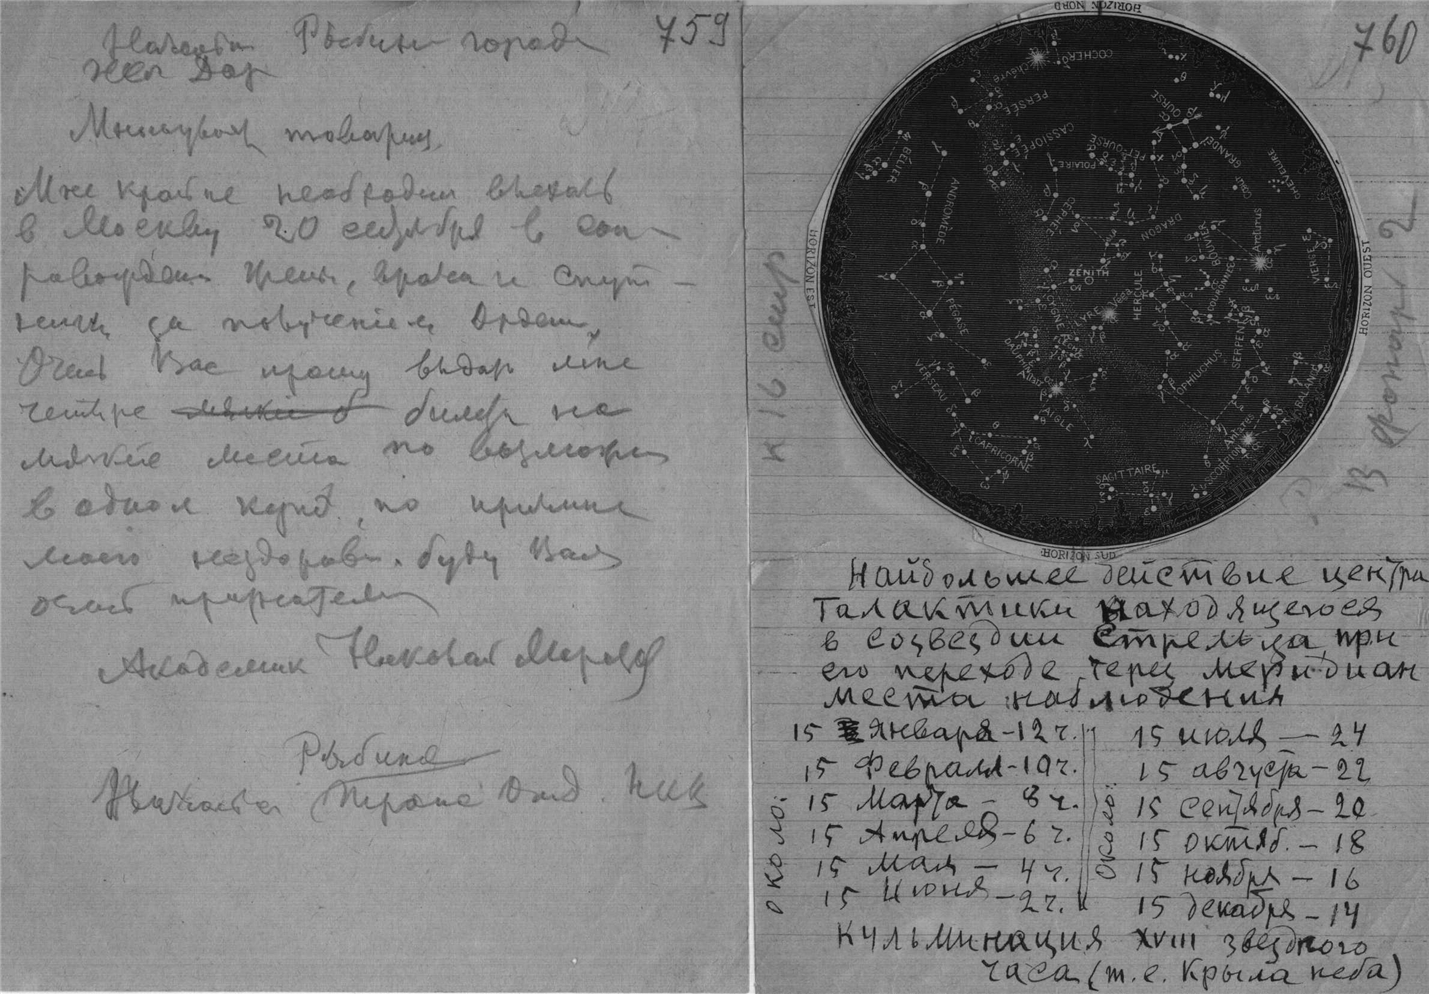 759
Рыбинск города
жел Дор
Многоуваж товарищ
Мне крайне необходим выехать
в Москву 20 сентября в соп-
ровождении жены, врача и спут-
ницы за получением Ордена,
Очень Вас прошу выдать мне
четыре билета на
мягкие места по возможн
в одном купэ, по причине
моего нездоровья. буду Вам
очень признателен
Академик Николай Морозов
Рыбинск
760
HORIZON NORD
HORIZON EST
HORIZON OUEST
HORIZON SUD
COCHER
Chèvre
PERSÉE
CASSIOPÉE
PETITE OURSE
POLAIRE
GRANDE OURSE
CHEVELURE
BÉLIER
ANDROMÈDE
CÉPHÉE
DRAGON
BOUVIER
Arcturus
VIERGE
ZÉNITH
CYGNE
LYRE
Véga
HERCULE
COURONNE
PÉGASE
DAUPHIN
Altaïr
AIGLE
OPHIUCHUS
SERPENT
BALANCE
VERSEAU
CAPRICORNE
SAGITTAIRE
SCORPION
Antarès
к 16 стр
В фонарь 2
Наибольшее действие центра
Галактики находящегося
в созвездии Стрельца при
его переходе через меридиан
места наблюдения
около:
15 января - 12 ч.
15 Февраля - 10 ч.
15 Марта - 8 ч.
15 Апреля - 6 ч.
15 Мая - 4 ч.
15 Июня - 2 ч.
Около:
15 июля — 24
15 августа - 22
15 сентября - 20
15 октяб. - 18
15 ноября - 16
15 декабря - 14
Кульминация XVIII звездного
часа (т.е. Крыла неба)